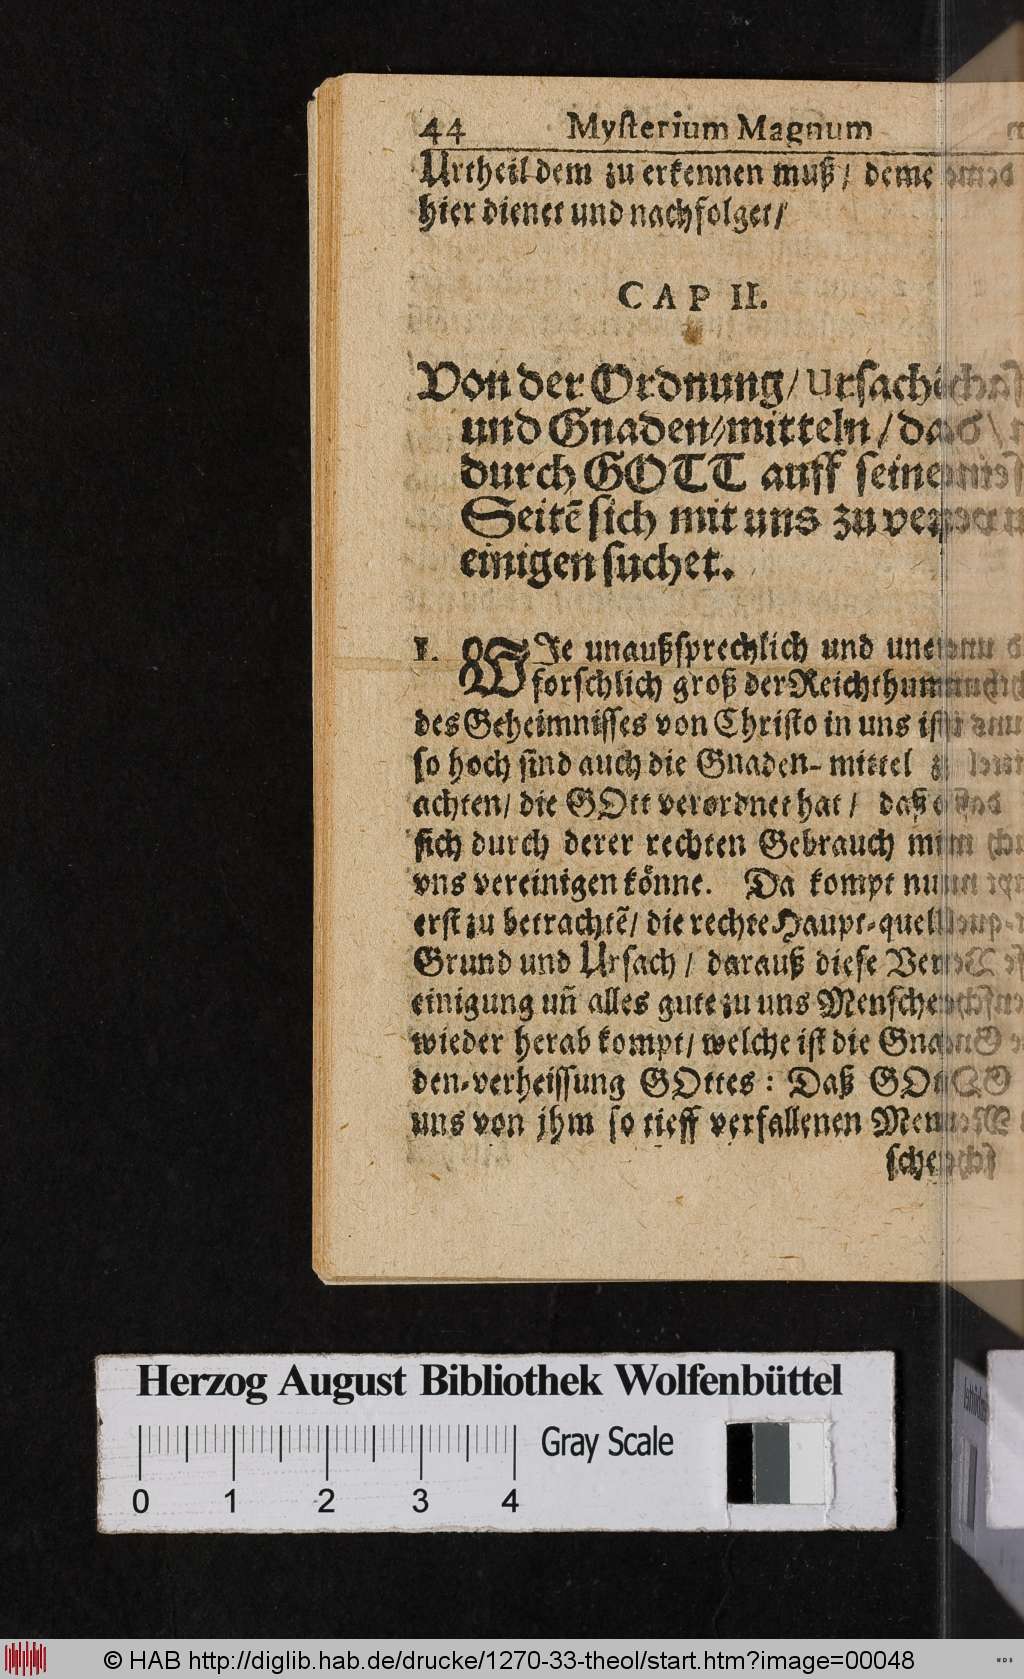 44 Mysterium Magnum
Urtheil dem zu erkennen muß / deme
hier dienet und nachfolget /
CAP II.
Von der Ordnung / Ursach
und Gnaden-mitteln / da
durch GOTT auff seine
Seitẽ sich mit uns zu ver-
einigen suchet.
1. WIe unaußsprechlich und uner-
forschlich groß der Reichthum
des Geheimnisses von Christo in uns ist
so hoch sind auch die Gnaden-mittel zu
achten / die GOtt verordnet hat / daß
sich durch derer rechten Gebrauch mit
vns vereinigen könne. Da kompt nun
erst zu betrachtẽ / die rechte Haupt-quell
Grund und Ursach / darauß diese Ver-
einigung uñ alles gute zu uns Menschen
wieder herab kompt / welche ist die Gna-
den-verheissung GOttes : Daß GOtt
uns von jhm so tieff verfallenen Men-
schen
Herzog August Bibliothek Wolfenbüttel
Gray Scale
0 1 2 3 4
© HAB http://diglib.hab.de/drucke/1270-33-theol/start.htm?image=00048